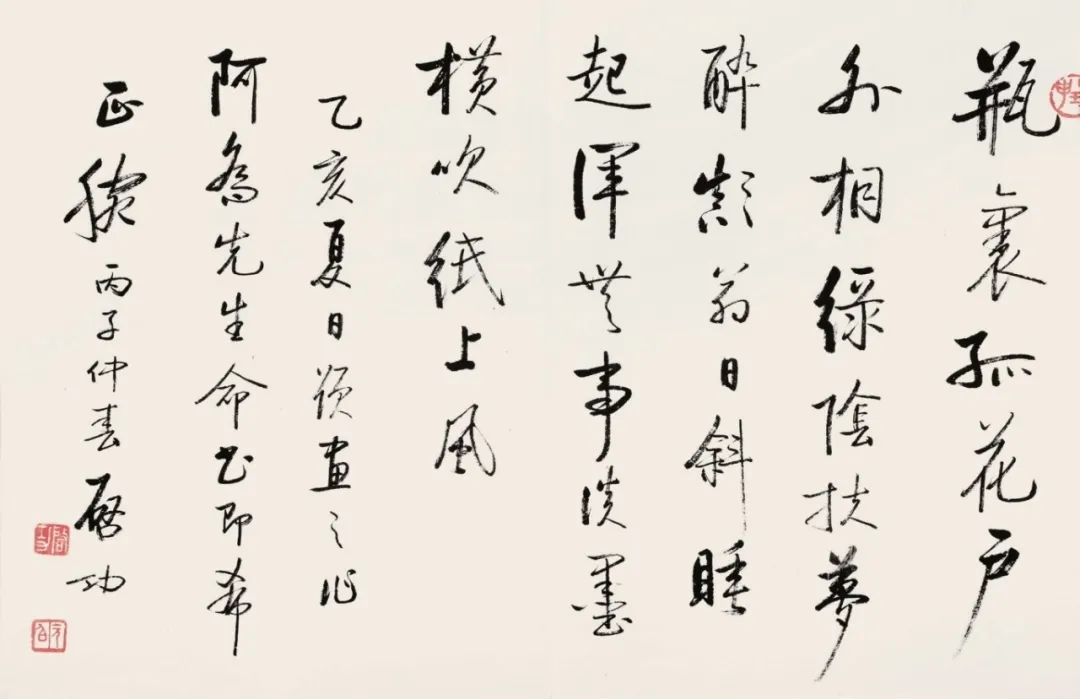 瓶裏孤花户
外桐綠陰扶夢
醉顛翁日斜睡
起渾無事淡墨
橫吹紙上風
乙亥夏日題畫之作
阿喬先生命書即希
正腕丙子仲春啟功